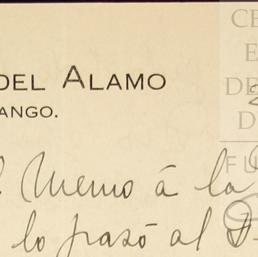 DEL ALAMO
ANGO.
CE
E
DE
D
FU
Memo á la
lo pasó al